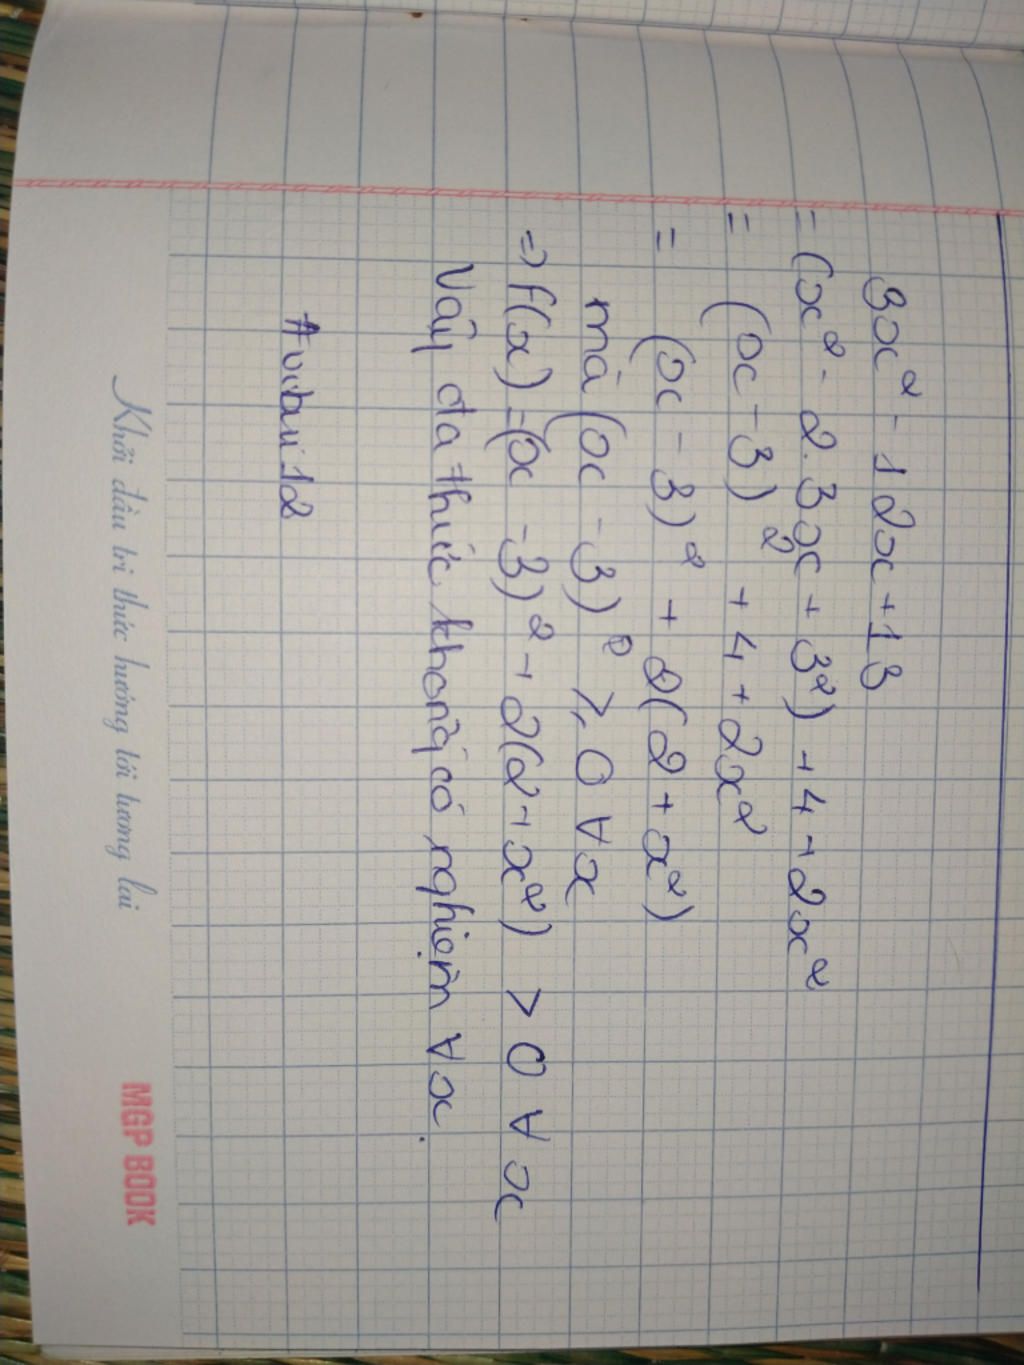 3x² - 12x + 13
= (x² - 2.3x + 3²) + 4 + 2x²
= (x - 3)² + 4 + 2x²
= (x - 3)² + 2(2 + x²)
mà (x - 3)² ⩾ 0 ∀x
=> f(x) = (x - 3)² + 2(2 + x²) > 0 ∀x
Vậy đa thức không có nghiệm ∀x.
Khởi đầu tri thức hướng tới tương lai
MGP BOOK